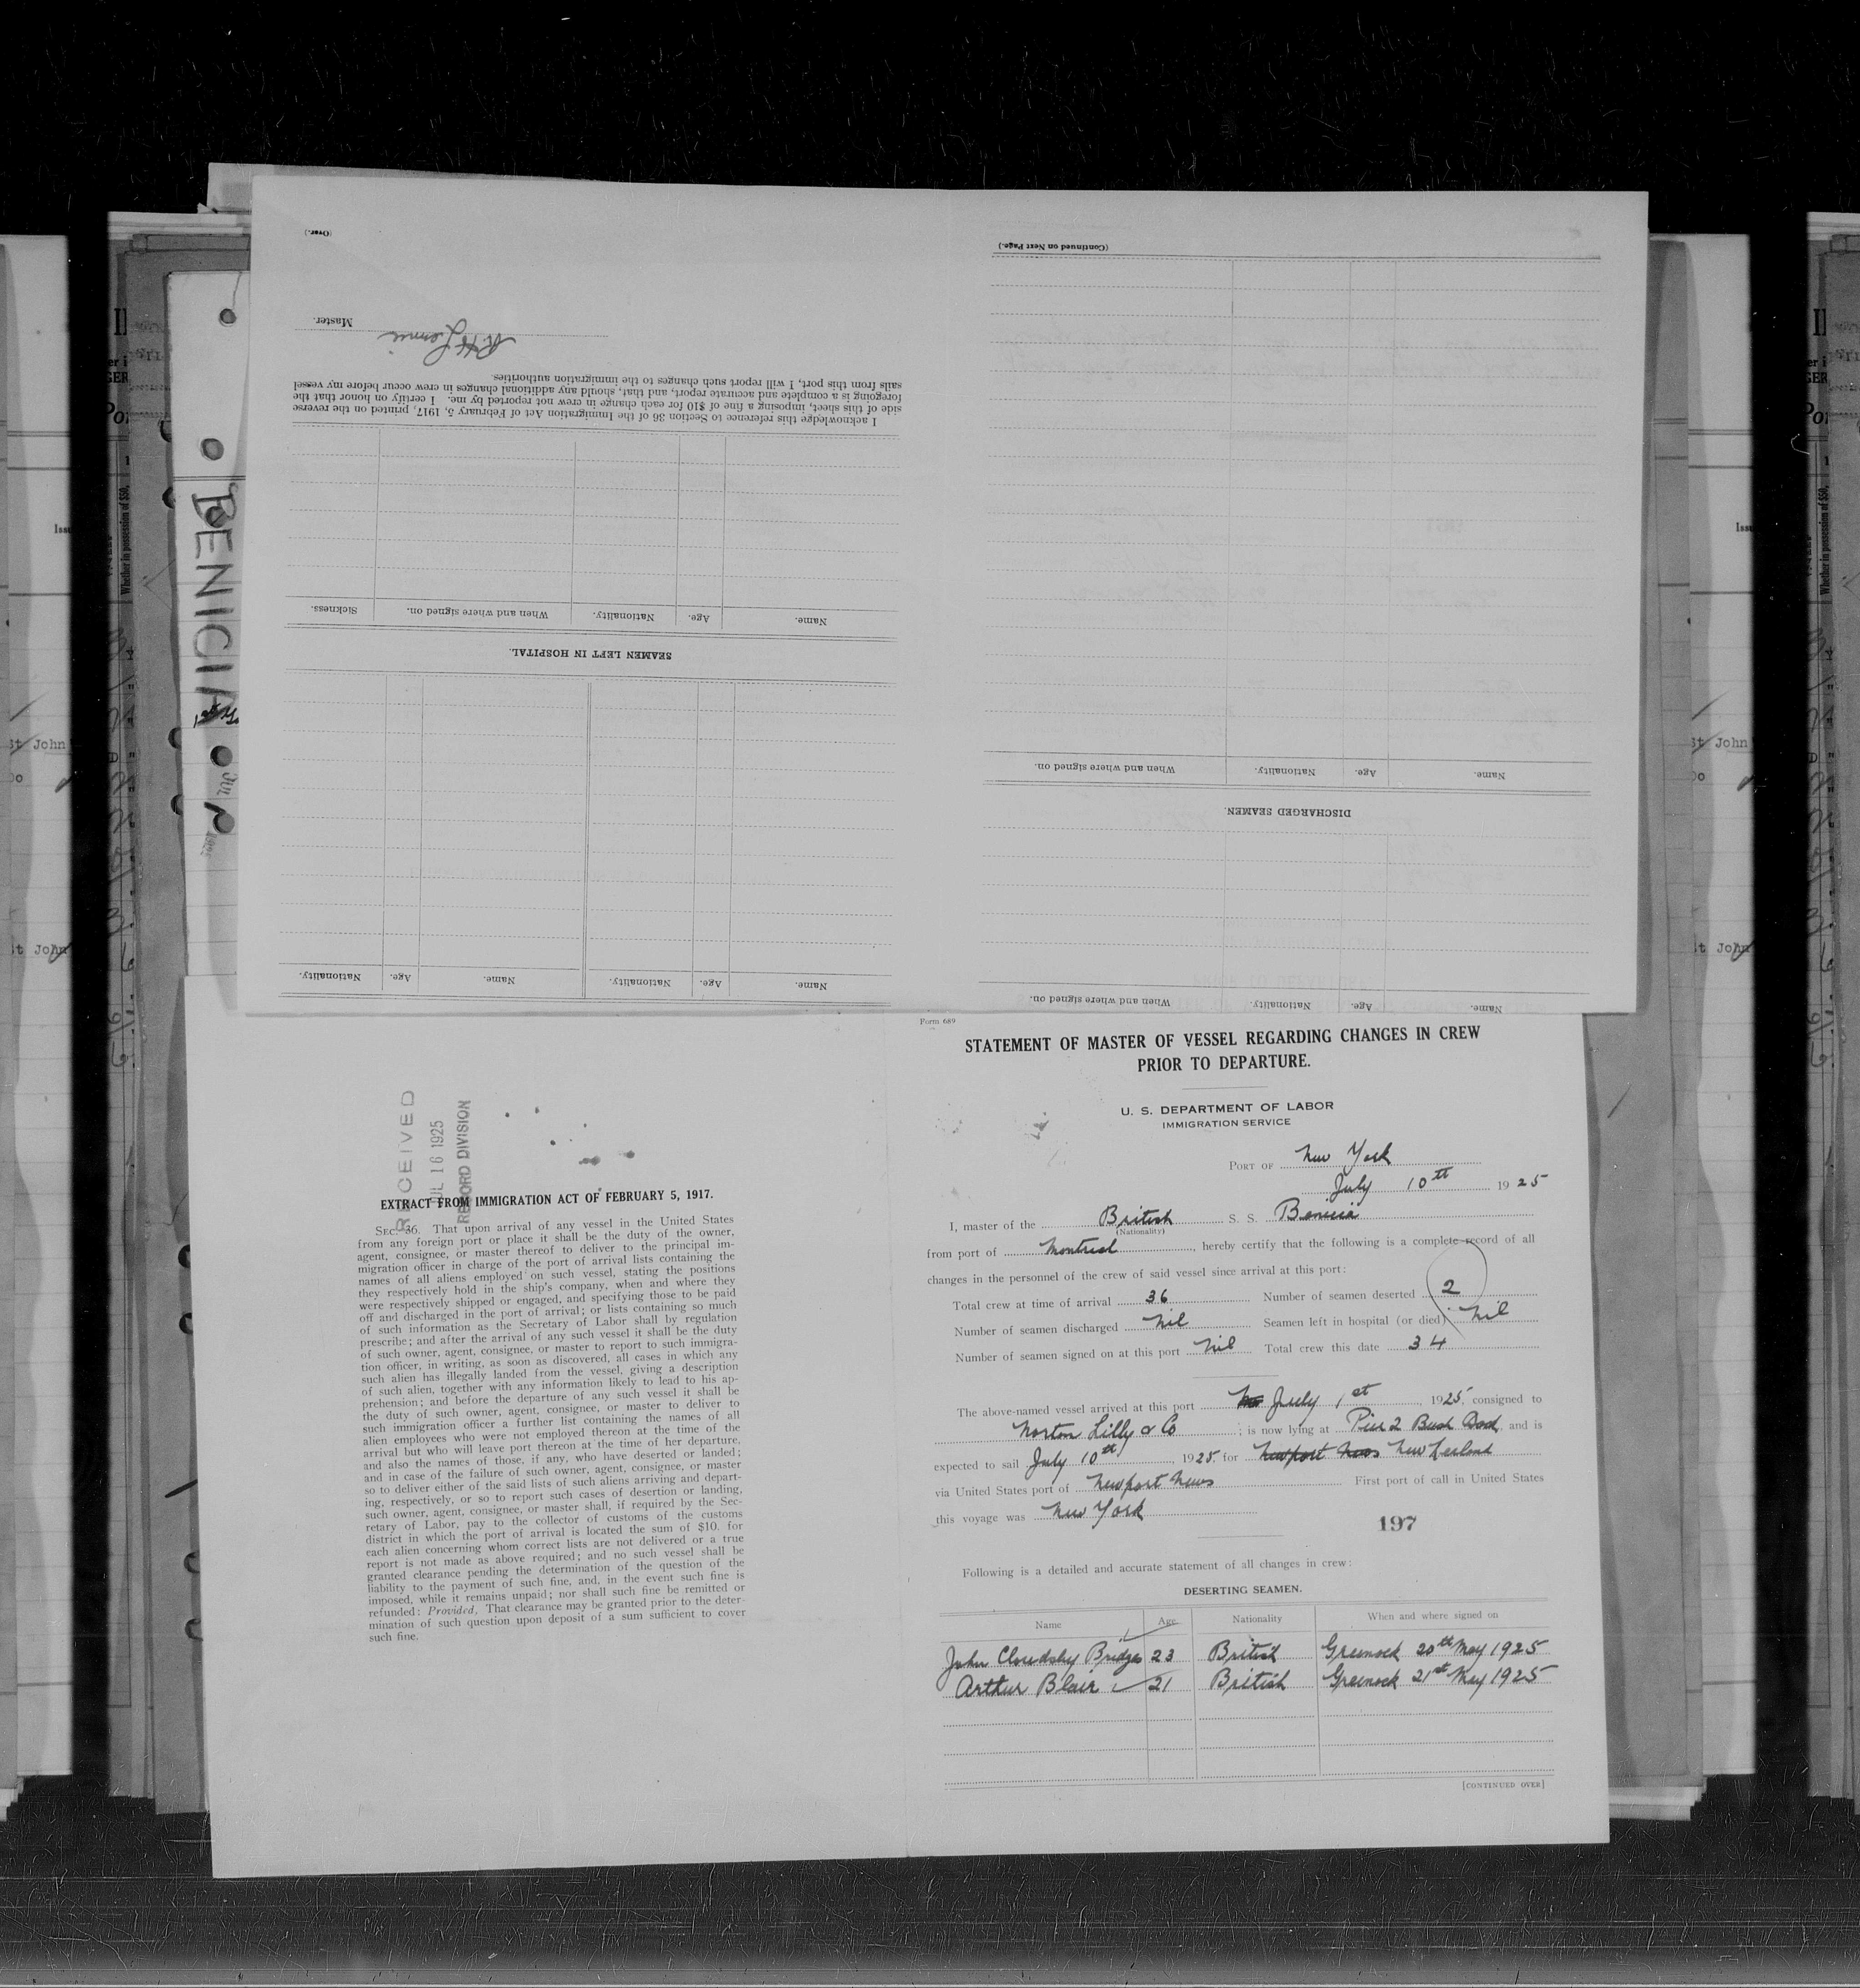 (Over.)
Master.
I acknowledge this reference to Section 36 of the Immigration Act of February 5, 1917, printed on the reverse
side of this sheet, imposing a fine of $10 for each change in crew not reported by me. I certify on honor that the
foregoing is a complete and accurate report, and that, should any additional changes in crew occur before my vessel
sails from this port, I will report such changes to the immigration authorities.
Sickness. When and where signed on. Nationality. Age. Name.
SEAMEN LEFT IN HOSPITAL.
Nationality. Age. Name. Nationality. Age. Name.
(Continued on Next Page.)
When and where signed on. Nationality. Age. Name.
DISCHARGED SEAMEN.
When and where signed on. Nationality. Age. Name.
BENICIA
St John
Do
St John
RECEIVED
JUL 16 1925
RECORD DIVISION
EXTRACT FROM IMMIGRATION ACT OF FEBRUARY 5, 1917.
SEC. 36. That upon arrival of any vessel in the United States
from any foreign port or place it shall be the duty of the owner,
agent, consignee, or master thereof to deliver to the principal im-
migration officer in charge of the port of arrival lists containing the
names of all aliens employed on such vessel, stating the positions
they respectively hold in the ship's company, when and where they
were respectively shipped or engaged, and specifying those to be paid
off and discharged in the port of arrival; or lists containing so much
of such information as the Secretary of Labor shall by regulation
prescribe; and after the arrival of any such vessel it shall be the duty
of such owner, agent, consignee, or master to report to such immigra-
tion officer, in writing, as soon as discovered, all cases in which any
such alien has illegally landed from the vessel, giving a description
of such alien, together with any information likely to lead to his ap-
prehension; and before the departure of any such vessel it shall be
the duty of such owner, agent, consignee, or master to deliver to
such immigration officer a further list containing the names of all
alien employees who were not employed thereon at the time of the
arrival but who will leave port thereon at the time of her departure,
and also the names of those, if any, who have deserted or landed;
and in case of the failure of such owner, agent, consignee, or master
so to deliver either of the said lists of such aliens arriving and depart-
ing, respectively, or so to report such cases of desertion or landing,
such owner, agent, consignee, or master shall, if required by the Sec-
retary of Labor, pay to the collector of customs of the customs
district in which the port of arrival is located the sum of $10. for
each alien concerning whom correct lists are not delivered or a true
report is not made as above required; and no such vessel shall be
granted clearance pending the determination of the question of the
liability to the payment of such fine, and, in the event such fine is
imposed, while it remains unpaid; nor shall such fine be remitted or
refunded: Provided, That clearance may be granted prior to the deter-
mination of such question upon deposit of a sum sufficient to cover
such fine.
Form 689
STATEMENT OF MASTER OF VESSEL REGARDING CHANGES IN CREW
PRIOR TO DEPARTURE.
U. S. DEPARTMENT OF LABOR
IMMIGRATION SERVICE
PORT OF New York
July 10th 1925
I, master of the British S. S. Benicia
(Nationality)
from port of Montreal, hereby certify that the following is a complete record of all
changes in the personnel of the crew of said vessel since arrival at this port:
Total crew at time of arrival 36 Number of seamen deserted 2
Number of seamen discharged Nil Seamen left in hospital (or died) Nil
Number of seamen signed on at this port Nil Total crew this date 34
The above-named vessel arrived at this port July 1st, 1925, consigned to
Norton Lilly & Co; is now lying at Pier 2 Bush Dock, and is
expected to sail July 10th, 1925 for Newport News New Zealand
via United States port of Newport News First port of call in United States
this voyage was New York
197
Following is a detailed and accurate statement of all changes in crew:
DESERTING SEAMEN.
Name Age Nationality When and where signed on
John Cloudsley Bridges 23 British Greenock 20th May 1925
Arthur Blair 21 British Greenock 21st May 1925
[CONTINUED OVER]